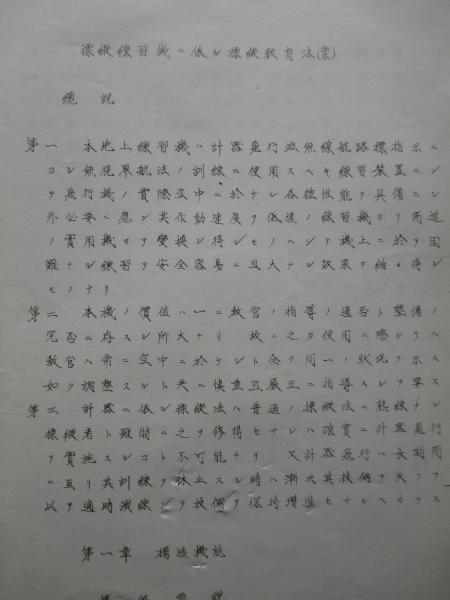 操縱練習機ニ依ル操縱敎育法(案)
總説
第一 本地上練習機ハ計器飛行並無線航路標指示ニ
ヨル無視界航法ノ訓練ニ使用スヘキ練習裝置ニシ
テ飛行機ノ實際空中ニ於ケル各種性能ヲ具備スル
外必要ニ應シ其作動速度ヲ低速ノ練習機ヨリ高速
ノ實用機マテ變換シ得ルモノニシテ機上ニ於テ困
難ナル練習ヲ安全容易ニ且大ナル效果ヲ納メ得ル
モノナリ
第二 本機ノ價値ハ一ニ敎官ノ指導ノ適否ト整備ノ
完否ニ存スル所大ナリ 故ニ之カ使用ニ際シテハ
敎官ハ常ニ空中ニ於ケルト全ク同一ノ狀況ヲ示ス
如ク調整スルト共ニ愼重且嚴正ニ指導スルヲ要ス
第三 計器ニ依ル操縱法ハ普通ノ操縱法ニ熟練ナル
操縱者ト雖特ニ之ヲ修得セサレハ確實ニ計器飛行
ヲ實施スルコト不可能ナリ 又計器飛行ハ長期間
ニ亙リ其訓練ヲ休止スル時ハ漸次其技倆ヲ失フヲ
以テ適時演練シテ技倆ヲ保持增進セサルヘカラス
第一章 構造機能